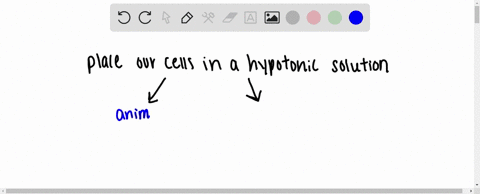 place our cells in a hypotonic solution
anim